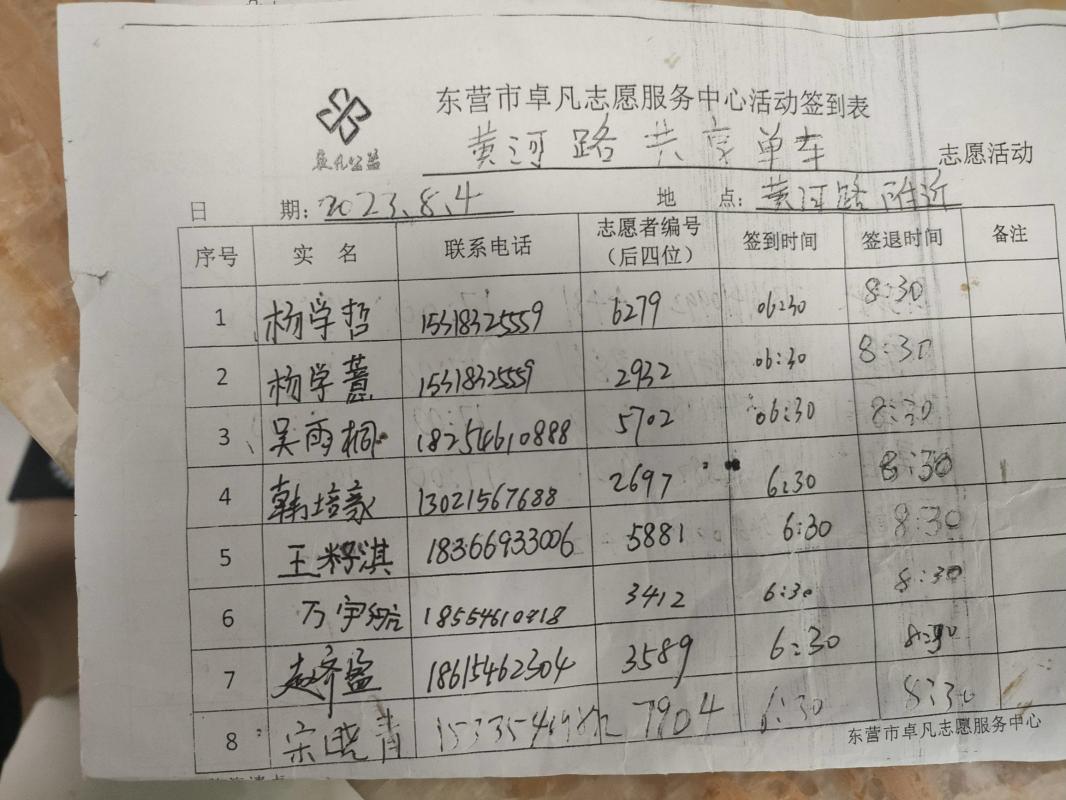 东营市卓凡志愿服务中心活动签到表
卓凡公益
黄河路共享单车 志愿活动
日 期：2023.8.4 地 点：黄河路附近
序号 实 名 联系电话 志愿者编号（后四位） 签到时间 签退时间 备注
1 杨学哲 15318325559 6279 06:30 8:30
2 杨学薏 15318325559 2932 06:30 8:30
3 吴雨桐 18254610888 5702 06:30 8:30
4 韩培豪 13021567688 2697 6:30 8:30
5 王籽淇 18366933006 5881 6:30 8:30
6 万宇 3412 6:30 8:30
7 赵齐盈 18615462304 3589 6:30 8:30
8 宋晓青 7904 6:30 8:30
东营市卓凡志愿服务中心